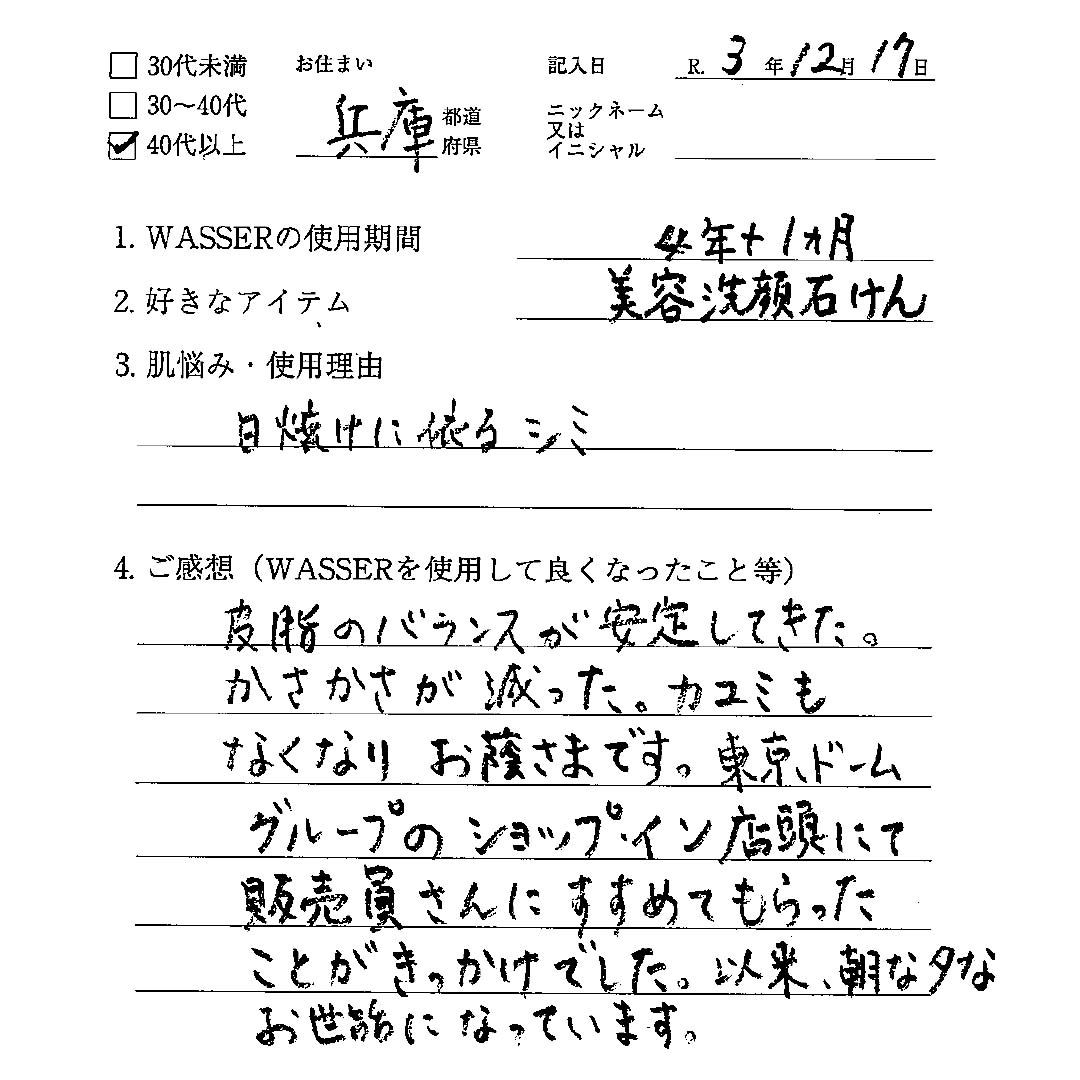 □ 30代未満 お住まい 記入日 R. 3 年 12 月 17 日
□ 30〜40代 兵庫 都道府県 ニックネーム又はイニシャル
☑ 40代以上
1. WASSERの使用期間 4年+1ヵ月
2. 好きなアイテム 美容洗顔石けん
3. 肌悩み・使用理由
日焼けに依るシミ
4. ご感想（WASSERを使用して良くなったこと等）
皮脂のバランスが安定してきた。
かさかさが減った。カユミも
なくなり お蔭さまです。東京ドーム
グループのショップ・イン店頭にて
販売員さんにすすめてもらった
ことがきっかけでした。以来、朝な夕な
お世話になっています。